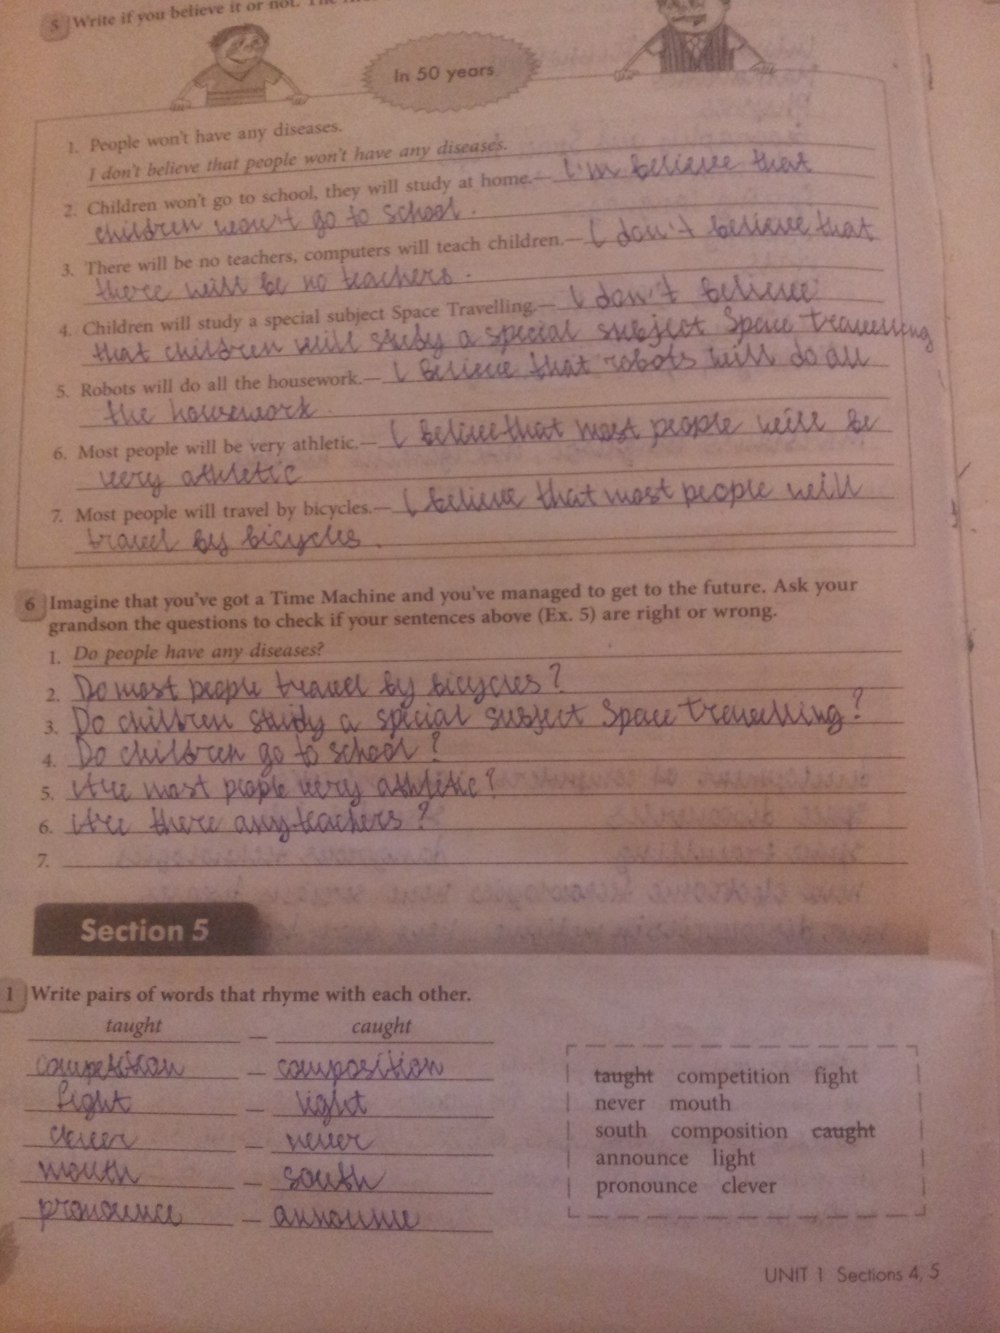 5 Write if you believe it or not.
In 50 years
1. People won't have any diseases.
I don't believe that people won't have any diseases.
2. Children won't go to school, they will study at home.— I'm believe that
children won't go to school.
3. There will be no teachers, computers will teach children.— I don't believe that
there will be no teachers.
4. Children will study a special subject Space Travelling.— I don't believe
that children will study a special subject Space travelling
5. Robots will do all the housework.— I believe that robots will do all
the housework.
6. Most people will be very athletic.— I believe that most people will be
very athletic
7. Most people will travel by bicycles.— I believe that most people will
travel by bicycles.
6 Imagine that you've got a Time Machine and you've managed to get to the future. Ask your
grandson the questions to check if your sentences above (Ex. 5) are right or wrong.
1. Do people have any diseases?
2. Do most people travel by bicycles?
3. Do children study a special subject Space travelling?
4. Do children go to school?
5. Are most people very athletic?
6. Are there any teachers?
7.
Section 5
1 Write pairs of words that rhyme with each other.
taught — caught
competition — composition
fight — light
clever — never
mouth — south
pronounce — announce
taught competition fight
never mouth
south composition caught
announce light
pronounce clever
UNIT 1 Sections 4, 5